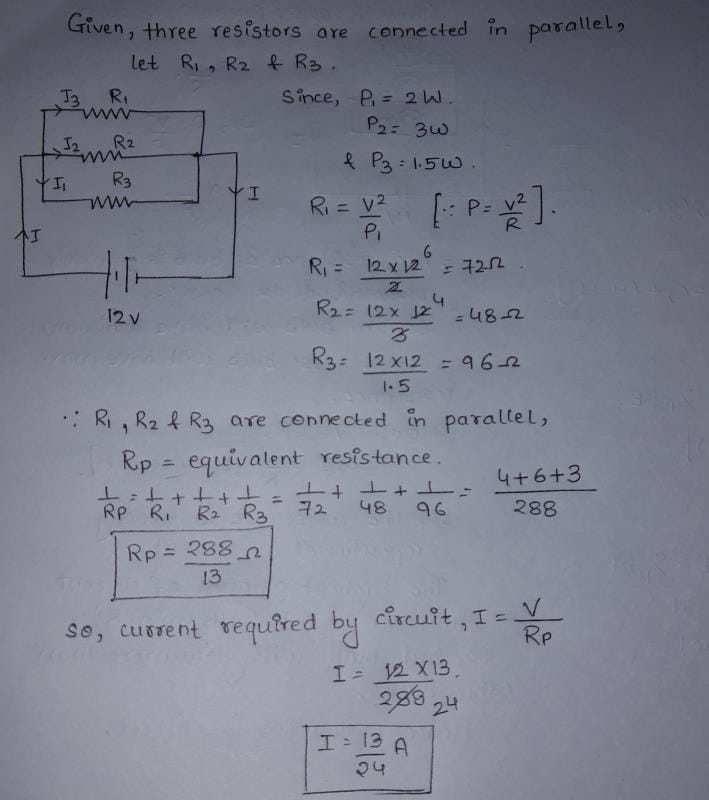 Given, three resistors are connected in parallel,
let R₁, R₂ & R₃.
I₃ R₁
I₂ R₂
I₁ R₃
I
I
12V
Since, P₁ = 2W.
P₂ = 3W
& P₃ = 1.5W.
R₁ = V²/P₁ [∵ P = V²/R].
R₁ = 12 × 12 6/2 = 72Ω.
R₂ = 12 × 12 4/3 = 48Ω
R₃ = 12 × 12/1.5 = 96Ω
∵ R₁, R₂ & R₃ are connected in parallel,
Rp = equivalent resistance.
1/Rp = 1/R₁ + 1/R₂ + 1/R₃ = 1/72 + 1/48 + 1/96 = 4+6+3/288
Rp = 288/13 Ω
so, current required by circuit, I = V/Rp
I = 12 × 13./288 24
I = 13/24 A